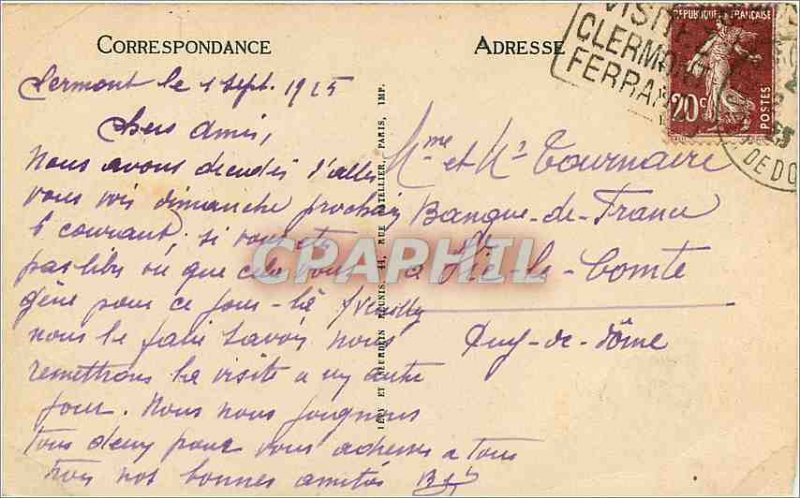 CORRESPONDANCE
Clermont le 1 Sept. 1925
Chers Amis,
Nous avons décidés d'aller
vous voir dimanche prochain
6 courant, si vous êtes
pas libre où que cela vous
gêne pour ce jour-là veuilly
nous le faire savoir nous
remettrons la visite a un autre
jour. Nous nous joignons
tous deux pour vous adresser a tous
trois nos bonnes amitiés
IMP. LEVY ET NEURDEIN RÉUNIS, 44, RUE LETELLIER, PARIS
ADRESSE
VISITEZ
CLERMONT
FERRAND
RÉPUBLIQUE FRANÇAISE
20c
POSTES
DE DO
Mme et Mr Tournaire
Banque-de-France
à Vic-le-Comte
Puy-de-Dôme
CPAPHIL